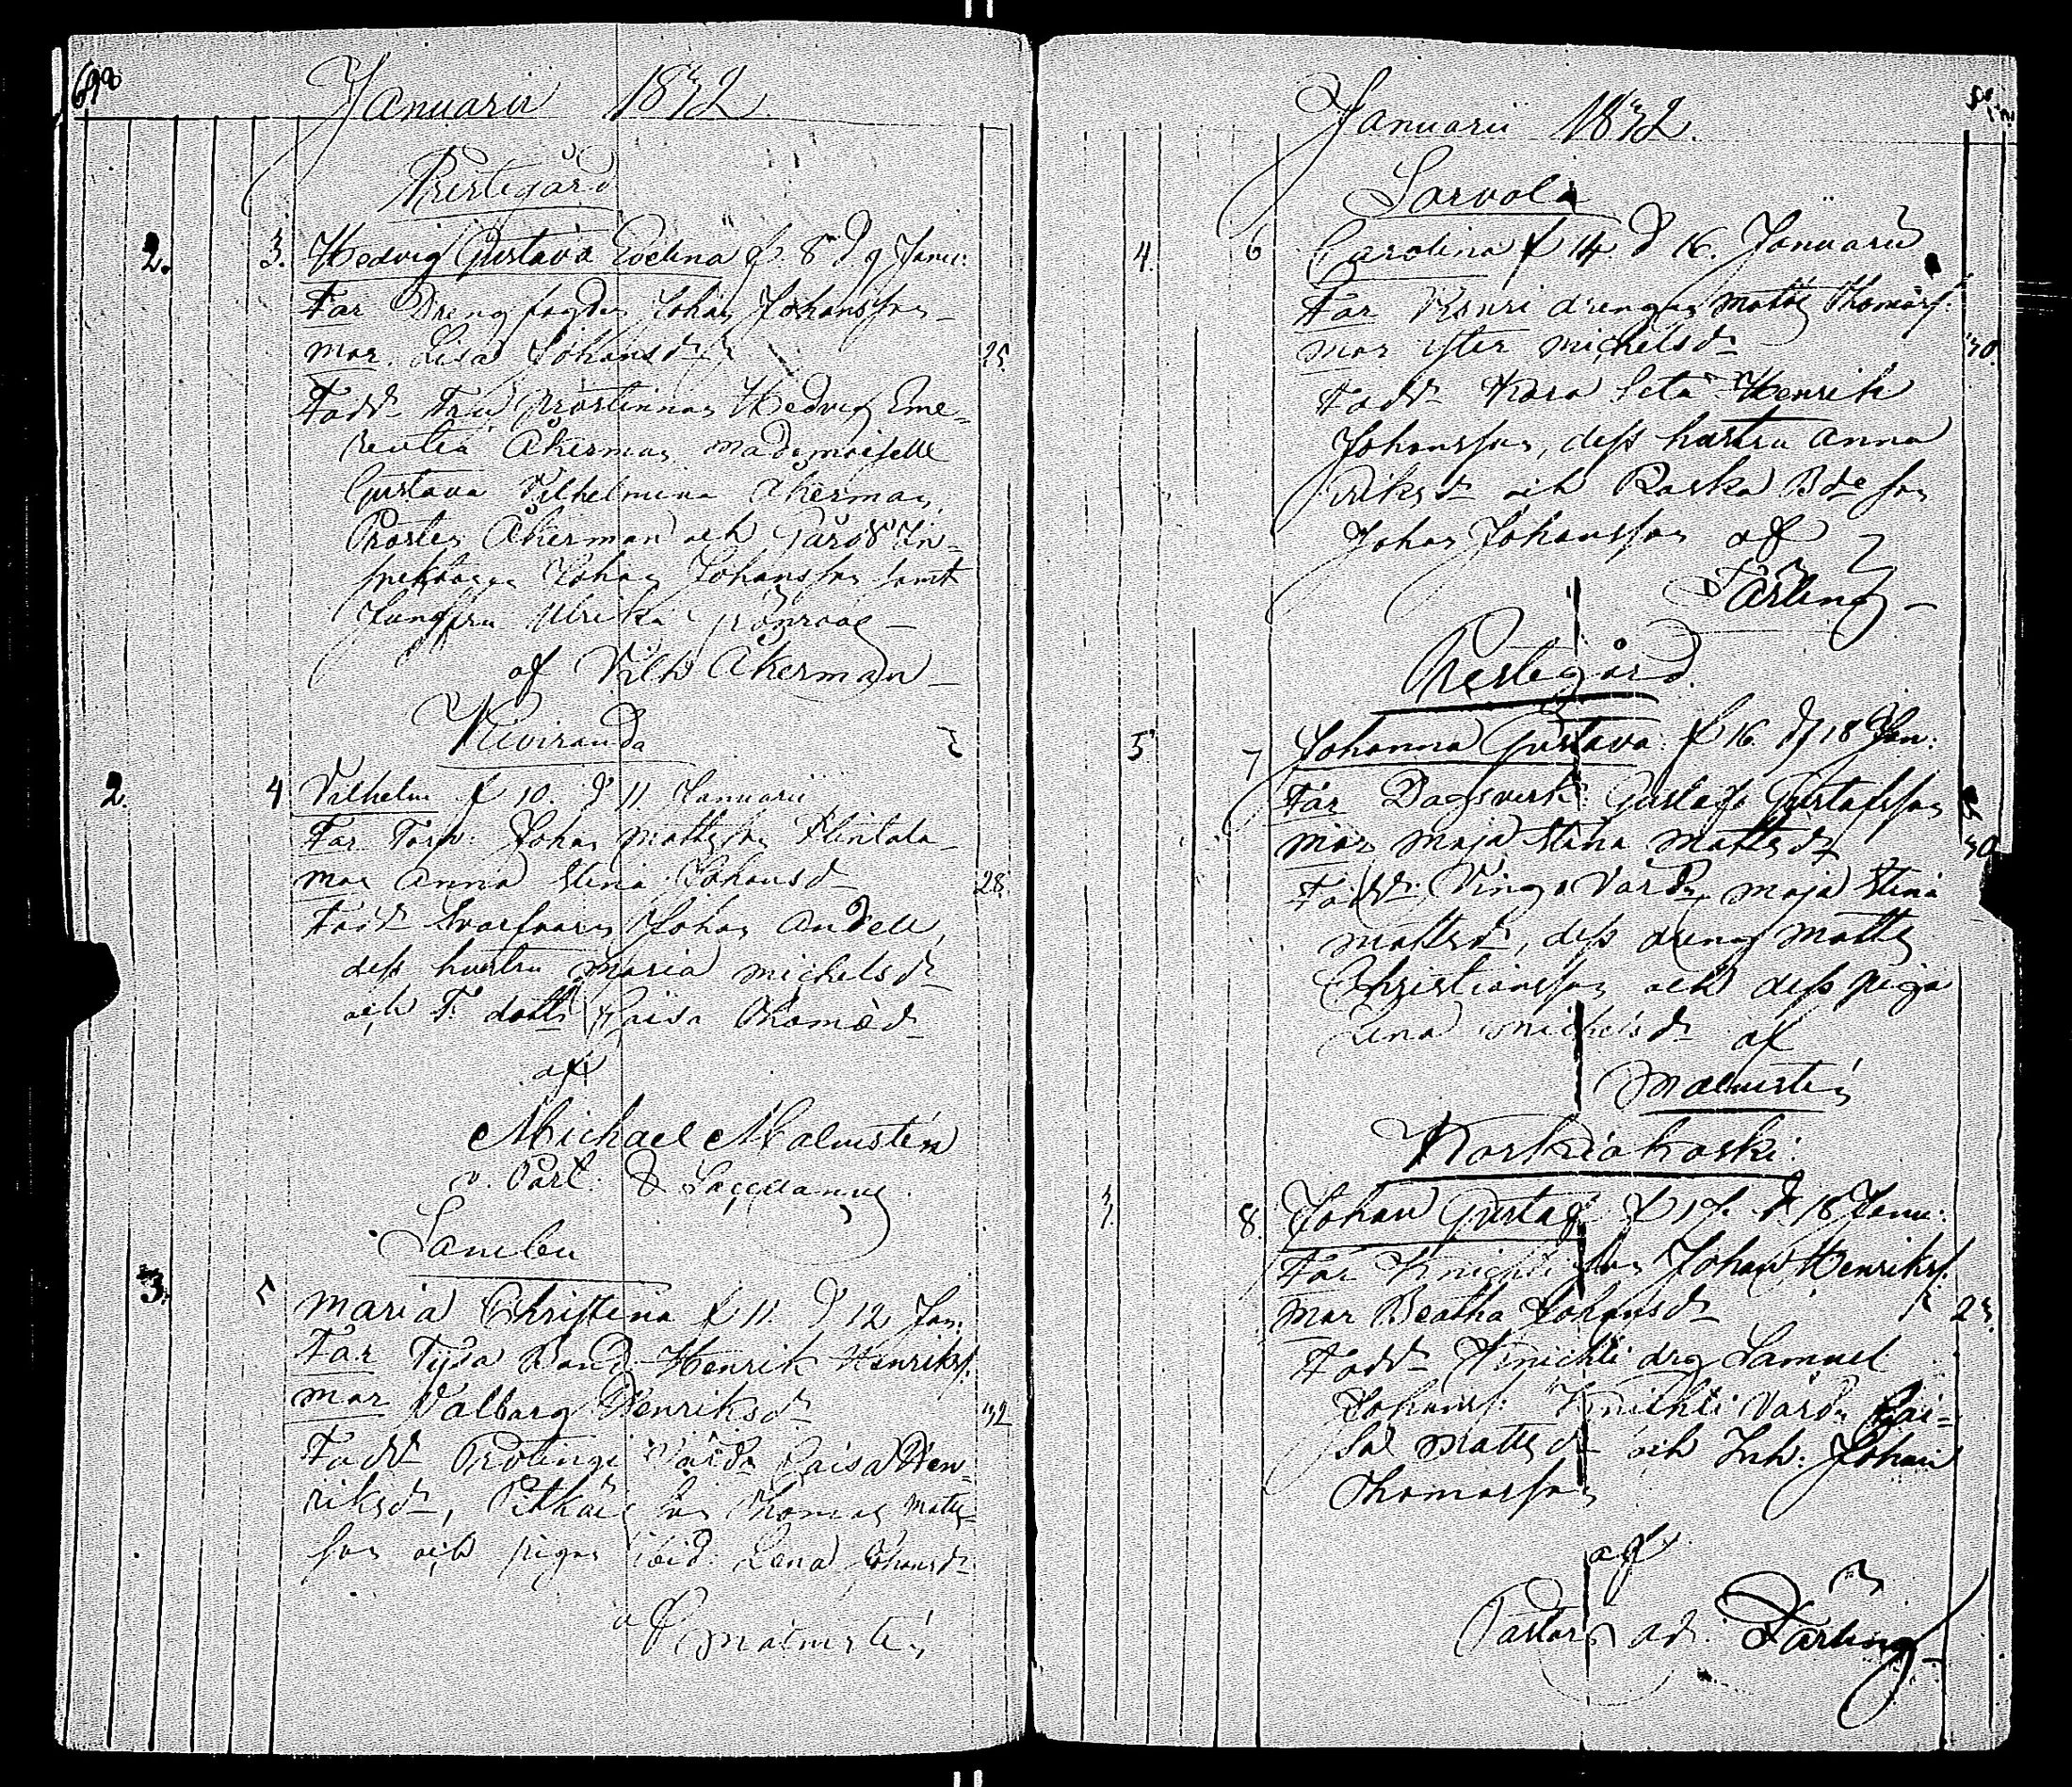 Januarii 1832
Prestegård
2. 3. Hedvig Gustava Evelina f. 8 d 9 Janu:
Far Drengfogden Johan Johansson
mor. Lisa Johansdr 25.
Fadd. Fru Prostinnan Hedvig Eme-
rentia Åkerman mademoiselle
Gustava Vilhelmina Åkerman
Prosten Åkerman och Gårds In-
spektoren Johan Johansson samt
Jungfru Ulrika Grönroos
af Vilh Åkerman
Kiviranda
2. 4 Vilhelm f 10. d 11 Januarii
Far Torp: Johan Mattsson
mor Anna Stina Johansd 28.
Fadd Svarfvaren Johan Andell,
dess hustru Maria Michelsdr
och T. dottr Caisa Thomasd
af
Michael Malmstén
v. Past. & Sacellanus
Sambu
3. 5 Maria Christina f 11. d 12 Jan:
Far Bond Henrik Henrikss.
mor Valborg Henriksdr 32
Fadd Värdn Caisa Hen-
riksdr, son Thomas Matts-
son och pigan ibid. Lena Johansdr
af Malmstén
Januarii 1832.
Sorvola
4. 6 Carolina f 14. d 16. Januarii
Far drengen Matts Thomass:
mor Michelsdr 30
Fadd Henrik
Johansson, dess hustru Anna
Eriksdr och Bde son
Johan Johansson af
Färling
Prestegård
5 7 Johanna Gustava f 16. d 18 Jan:
Far Dagsverk: Gustaf Gustafsson
mor Maja Stina Mattsdr 30
Fadd: Värdn Maja Stina
Mattsdr, dess dreng Matts
Christiansson och dess piga
Lena Michelsdr af
Malmstén
Korkiakoski:
3. 8. Johan Gustaf f 17. d. 18 Janu:
Far Knichti son Johan Henrikss.
mor Beatha Johansdr 23.
Fadd Knichti drg Samuel
Johanss: Knichti Värdn Cai-
sa Mattsdr och Inh: Johan
Thomasson
af
Pastors ad. Färling